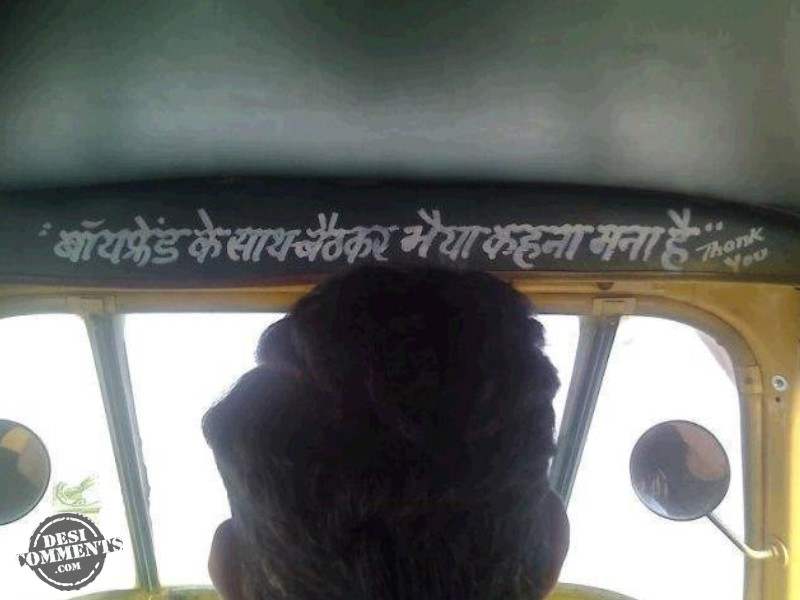 "बॉयफ्रेंड के साथ बैठकर भैया कहना मना है"
Thank
You
DESI
COMMENTS
.COM